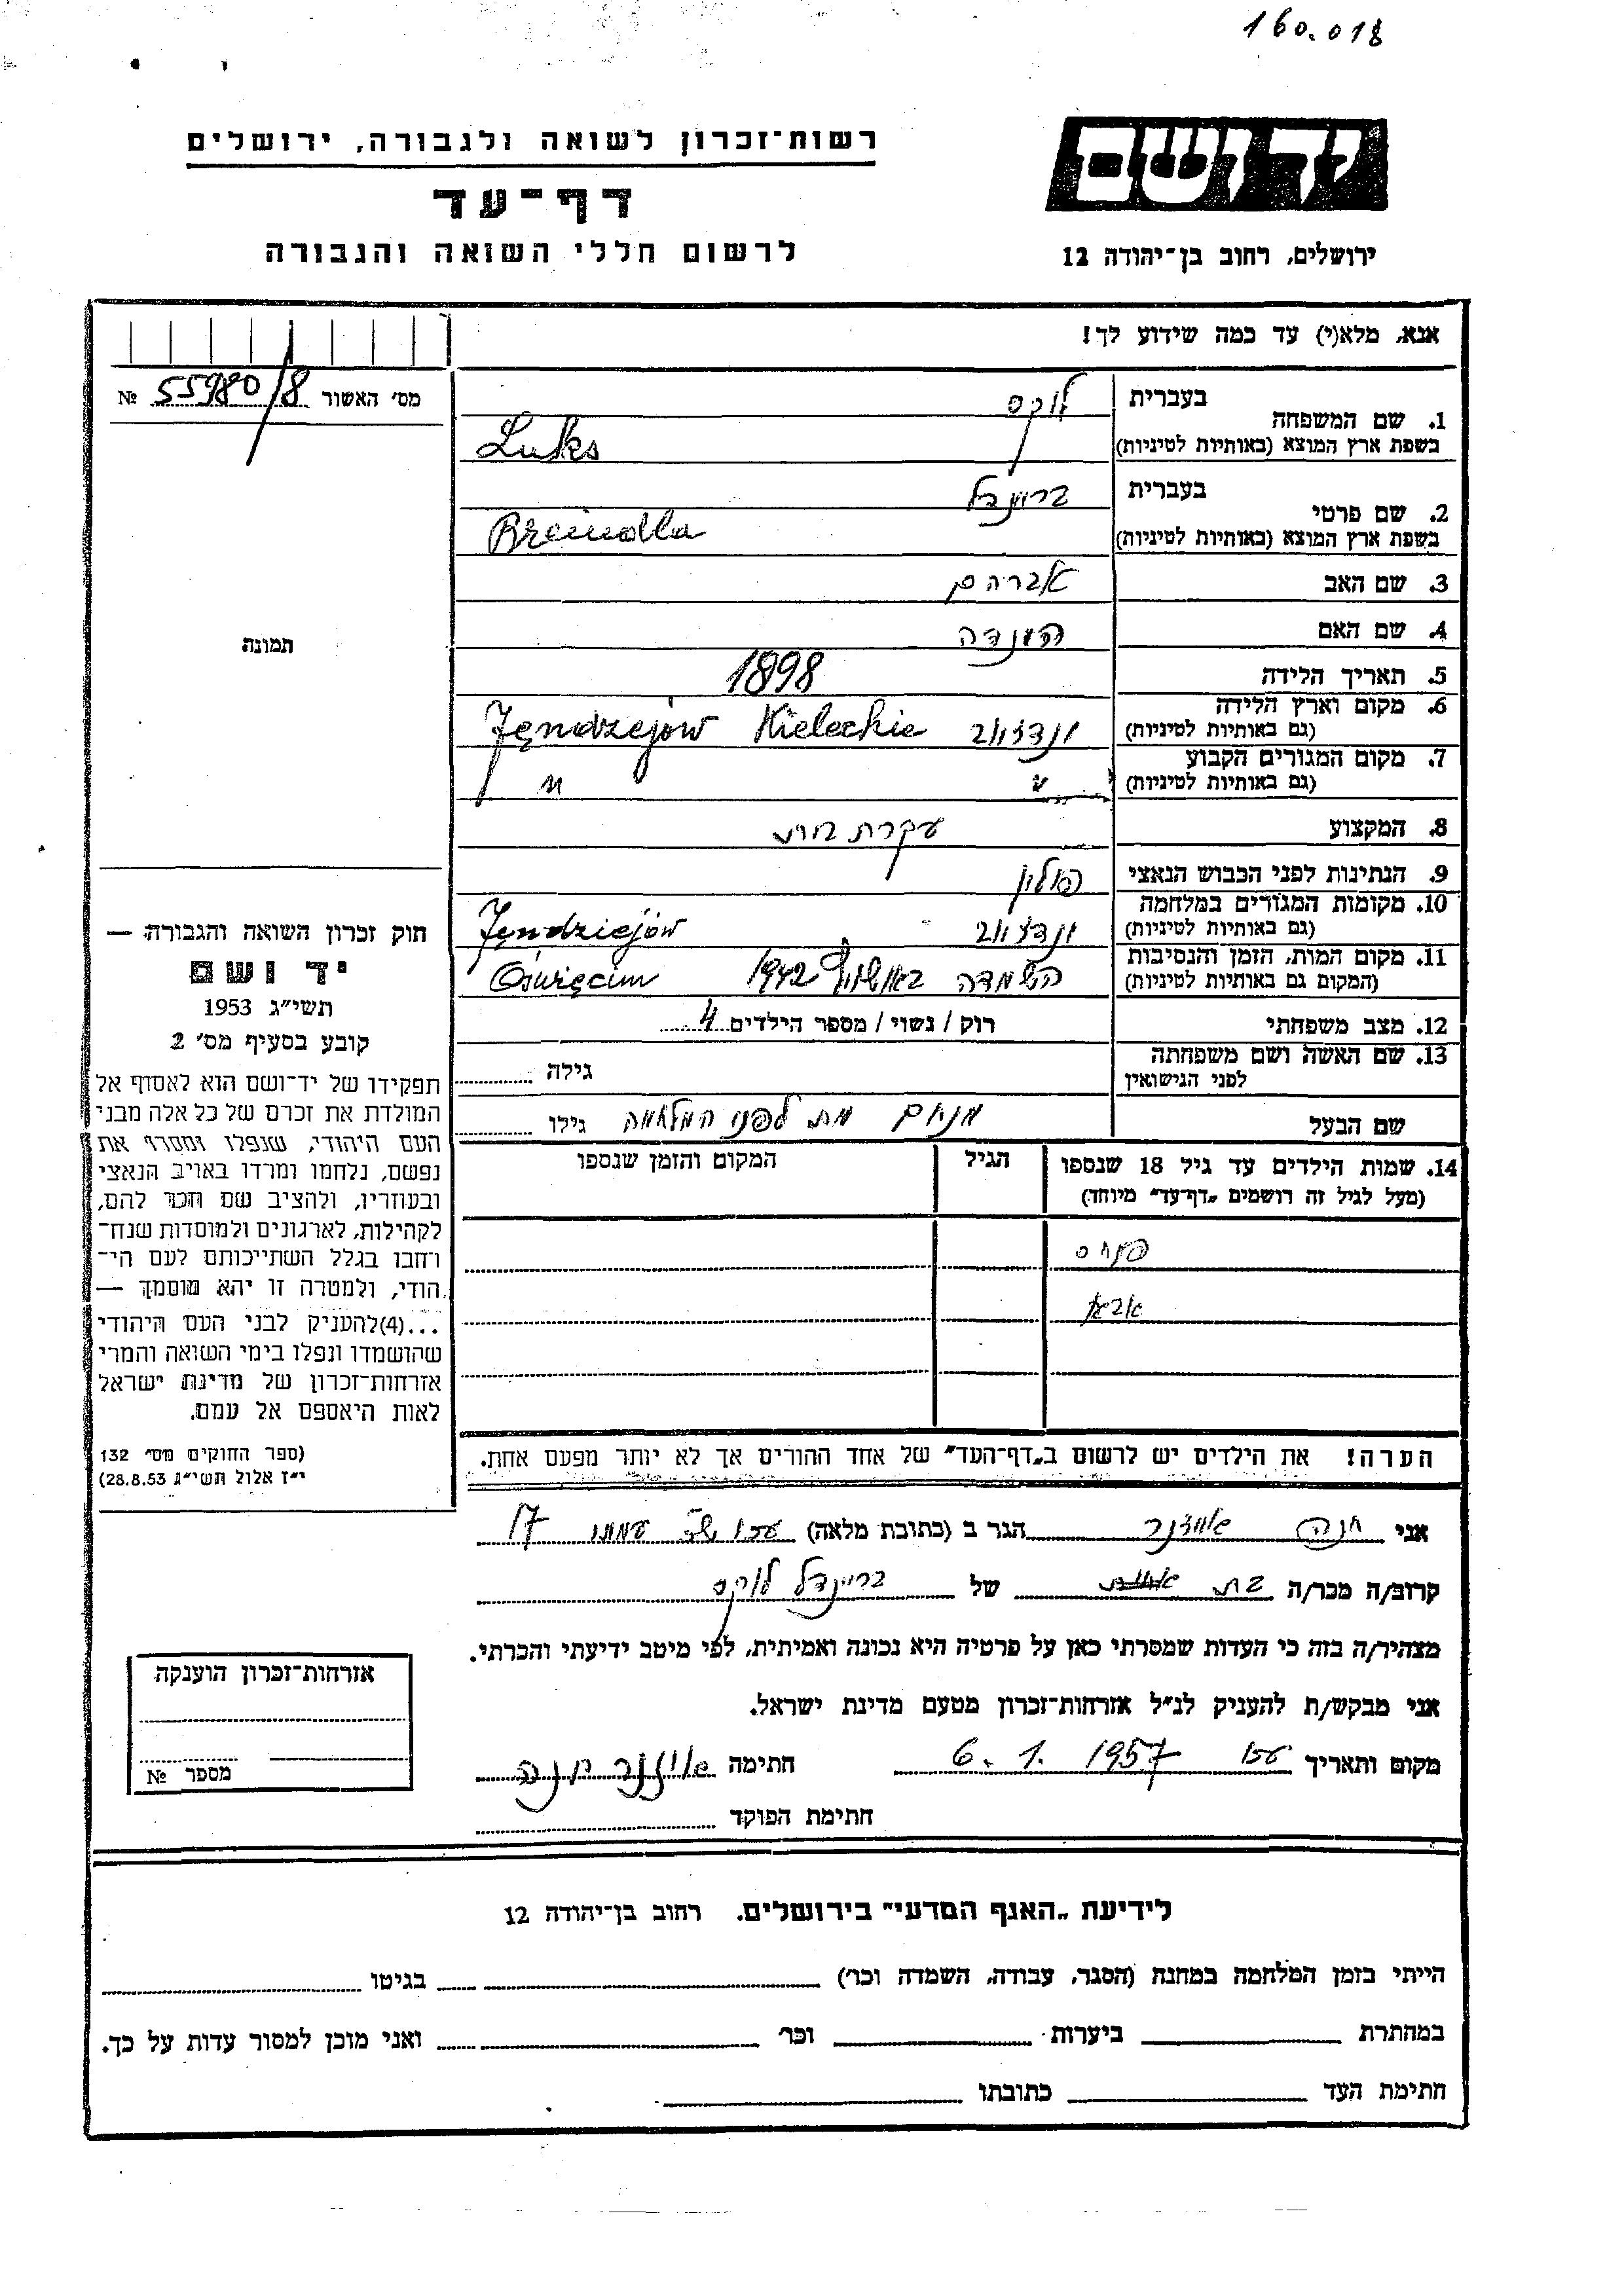 160.018
רשות־זכרון לשואה ולגבורה, ירושלים
דף־עד
לרשום חללי השואה והגבורה
יד ושם
ירושלים, רחוב בן־יהודה 12
אנא, מלא(י) עד כמה שידוע לך!
מס׳ האשור 55980/8 №
1. שם המשפחה
בעברית לוקס
בשפת ארץ המוצא (באותיות לטיניות) Luks
2. שם פרטי
בעברית
בשפת ארץ המוצא (באותיות לטיניות)
3. שם האב אברהם
4. שם האם הענדה
5. תאריך הלידה 1898
6. מקום וארץ הלידה
(גם באותיות לטיניות) Jęndrzejów Kieleckie
7. מקום המגורים הקבוע
(גם באותיות לטיניות) " "
8. המקצוע עקרת בית
9. הנתינות לפני הכבוש הנאצי פולין
10. מקומות המגורים במלחמה
(גם באותיות לטיניות) Jęndziejów
11. מקום המות, הזמן והנסיבות
(המקום גם באותיות לטיניות) השמדה 1942 Oświęcim
12. מצב משפחתי רוק / נשוי / מספר הילדים 4
13. שם האשה ושם משפחתה
לפני הנישואין
גילה
שם הבעל מנחם מת לפני המלחמה גילו
14. שמות הילדים עד גיל 18 שנספו
(מעל לגיל זה רושמים „דף־עד״ מיוחד)
הגיל
המקום והזמן שנספו
פנחס
אבא
הערה! את הילדים יש לרשום ב„דף־העד״ של אחד ההורים אך לא יותר מפעם אחת.
תמונה
חוק זכרון השואה והגבורה —
יד ושם
תשי״ג 1953
קובע בסעיף מס׳ 2
תפקידו של יד־ושם הוא לאסוף אל
המולדת את זכרם של כל אלה מבני
העם היהודי, שנפלו ומסרו את
נפשם, נלחמו ומרדו באויב הנאצי
ובעוזריו, ולהציב שם וזכר להם,
לקהילות, לארגונים ולמוסדות שנח־
רחבו בגלל השתייכותם לעם הי־
הודי, ולמטרה זו יהא מוסמך —
...(4)להעניק לבני העם היהודי
שהושמדו ונפלו בימי השואה והמרי
אזרחות־זכרון של מדינת ישראל
לאות היאספם אל עמם.
(ספר החוקים מס׳ 132
י״ז אלול תשי״ג 28.8.53)
אני חנה הגר ב (כתובת מלאה) 17
קרוב/ה מכר/ה בת של בריינדל לוקס
מצהיר/ה בזה כי העדות שמסרתי כאן על פרטיה היא נכונה ואמיתית, לפי מיטב ידיעתי והכרתי.
אני מבקש/ת להעניק לנ״ל אזרחות־זכרון מטעם מדינת ישראל.
מקום ותאריך עכו 6.1.1957 חתימה חנה
חתימת הפוקד
אזרחות־זכרון הוענקה
מספר №
לידיעת „האגף המדעי״ בירושלים. רחוב בן־יהודה 12
הייתי בזמן המלחמה במחנה (הסגר, עבודה, השמדה וכו׳) בגיטו
במחתרת ביערות וכו׳ ואני מוכן למסור עדות על כך.
חתימת העד כתובתו